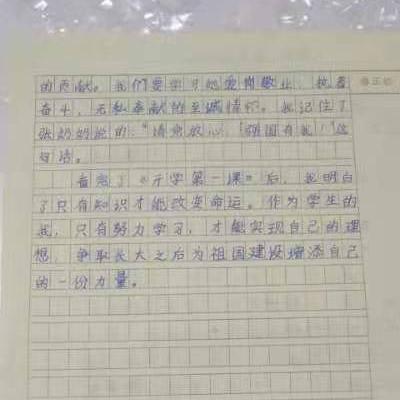 的贡献。我们要学习她爱岗敬业、执着
奋斗、无私奉献的至诚情怀。我记住了
张奶奶说的：“请党放心，强国有我！”这
句话。
看完了《开学第一课》后，我明白
了只有知识才能改变命运。作为学生的
我，只有努力学习，才能实现自己的理
想，争取长大之后为祖国建设增添自己
的一份力量。